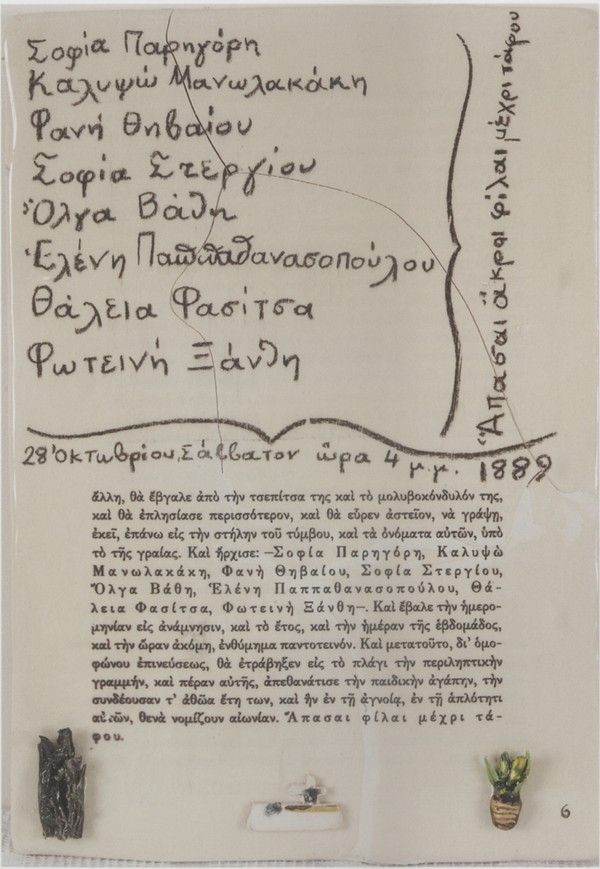 Σοφία Παρηγόρη
Καλυψώ Μανωλακάκη
Φανή Θηβαίου
Σοφία Στεργίου
Ὄλγα Βάθη
Ἑλένη Παππαθανασοπούλου
Θάλεια Φασίτσα
Φωτεινή Ξάνθη
Ἅπασαι ἄκραι φίλαι μέχρι τάφου
28 Ὀκτωβρίου, Σάββατον ὥρα 4 μ.μ. 1889
ἄλλη, θὰ ἔβγαλε ἀπὸ τὴν τσεπίτσα της καὶ τὸ μολυβοκόνδυλόν της,
καὶ θὰ ἐπλησίασε περισσότερον, καὶ θὰ εὗρεν ἀστεῖον, νὰ γράψῃ,
ἐκεῖ, ἐπάνω εἰς τὴν στήλην τοῦ τύμβου, καὶ τὰ ὀνόματα αὐτῶν, ὑπὸ
τὸ τῆς γραίας. Καὶ ἤρχισε: —Σοφία Παρηγόρη, Καλυψὼ
Μανωλακάκη, Φανὴ Θηβαίου, Σοφία Στεργίου,
Ὄλγα Βάθη, Ἑλένη Παππαθανασοπούλου, Θά-
λεια Φασίτσα, Φωτεινὴ Ξάνθη—. Καὶ ἔβαλε τὴν ἡμερο-
μηνίαν εἰς ἀνάμνησιν, καὶ τὸ ἔτος, καὶ τὴν ἡμέραν τῆς ἑβδομάδος,
καὶ τὴν ὥραν ἀκόμη, ἐνθύμημα παντοτεινόν. Καὶ μετατοῦτο, δι' ὁμο-
φώνου ἐπινεύσεως, θὰ ἐτράβηξεν εἰς τὸ πλάγι τὴν περιληπτικὴν
γραμμήν, καὶ πέραν αὐτῆς, ἀπεθανάτισε τὴν παιδικὴν ἀγάπην, τὴν
συνδέουσαν τ' ἀθῶα ἔτη των, καὶ ἣν ἐν τῇ ἀγνοίᾳ, ἐν τῇ ἁπλότητι
αὐτῶν, θενὰ νομίζουν αἰωνίαν. Ἅπασαι φίλαι μέχρι τά-
φου.
6